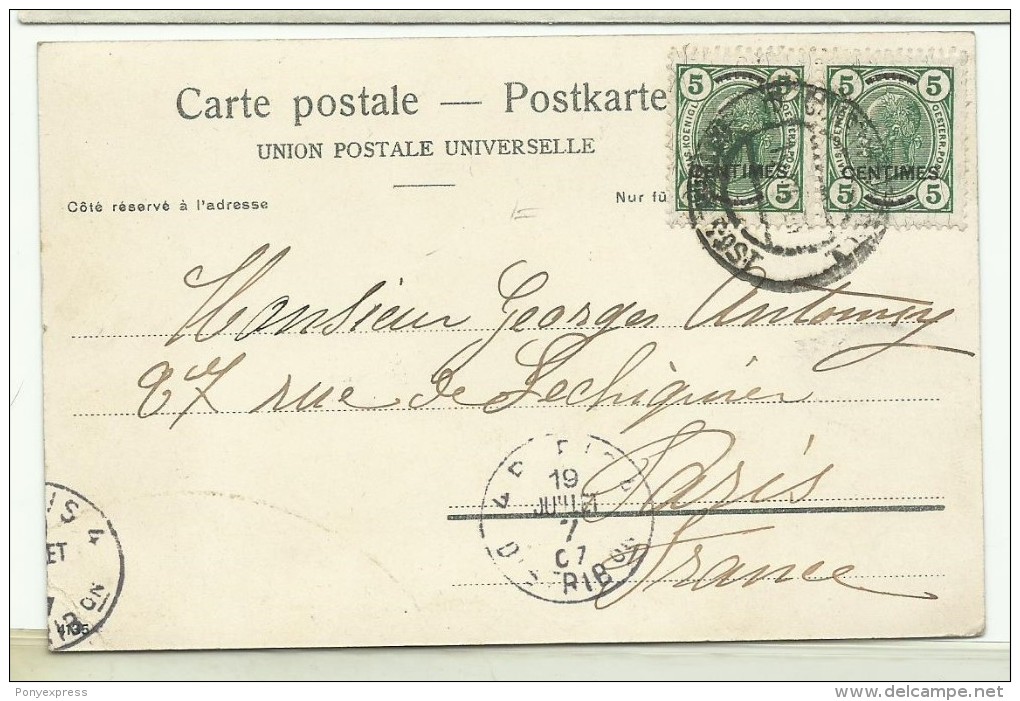 Carte postale — Postkarte
UNION POSTALE UNIVERSELLE
Côté réservé à l'adresse
Nur fü
5 5 5 5
CENTIMES CENTIMES
5 5 5 5
POST
Monsieur Georges Antonny
27 rue de Lechiquier
Paris
France
19
JUILLET
7
07
DISTRIBON
IS 4
ET
4135
Ponyexpress
www.delcampe.net